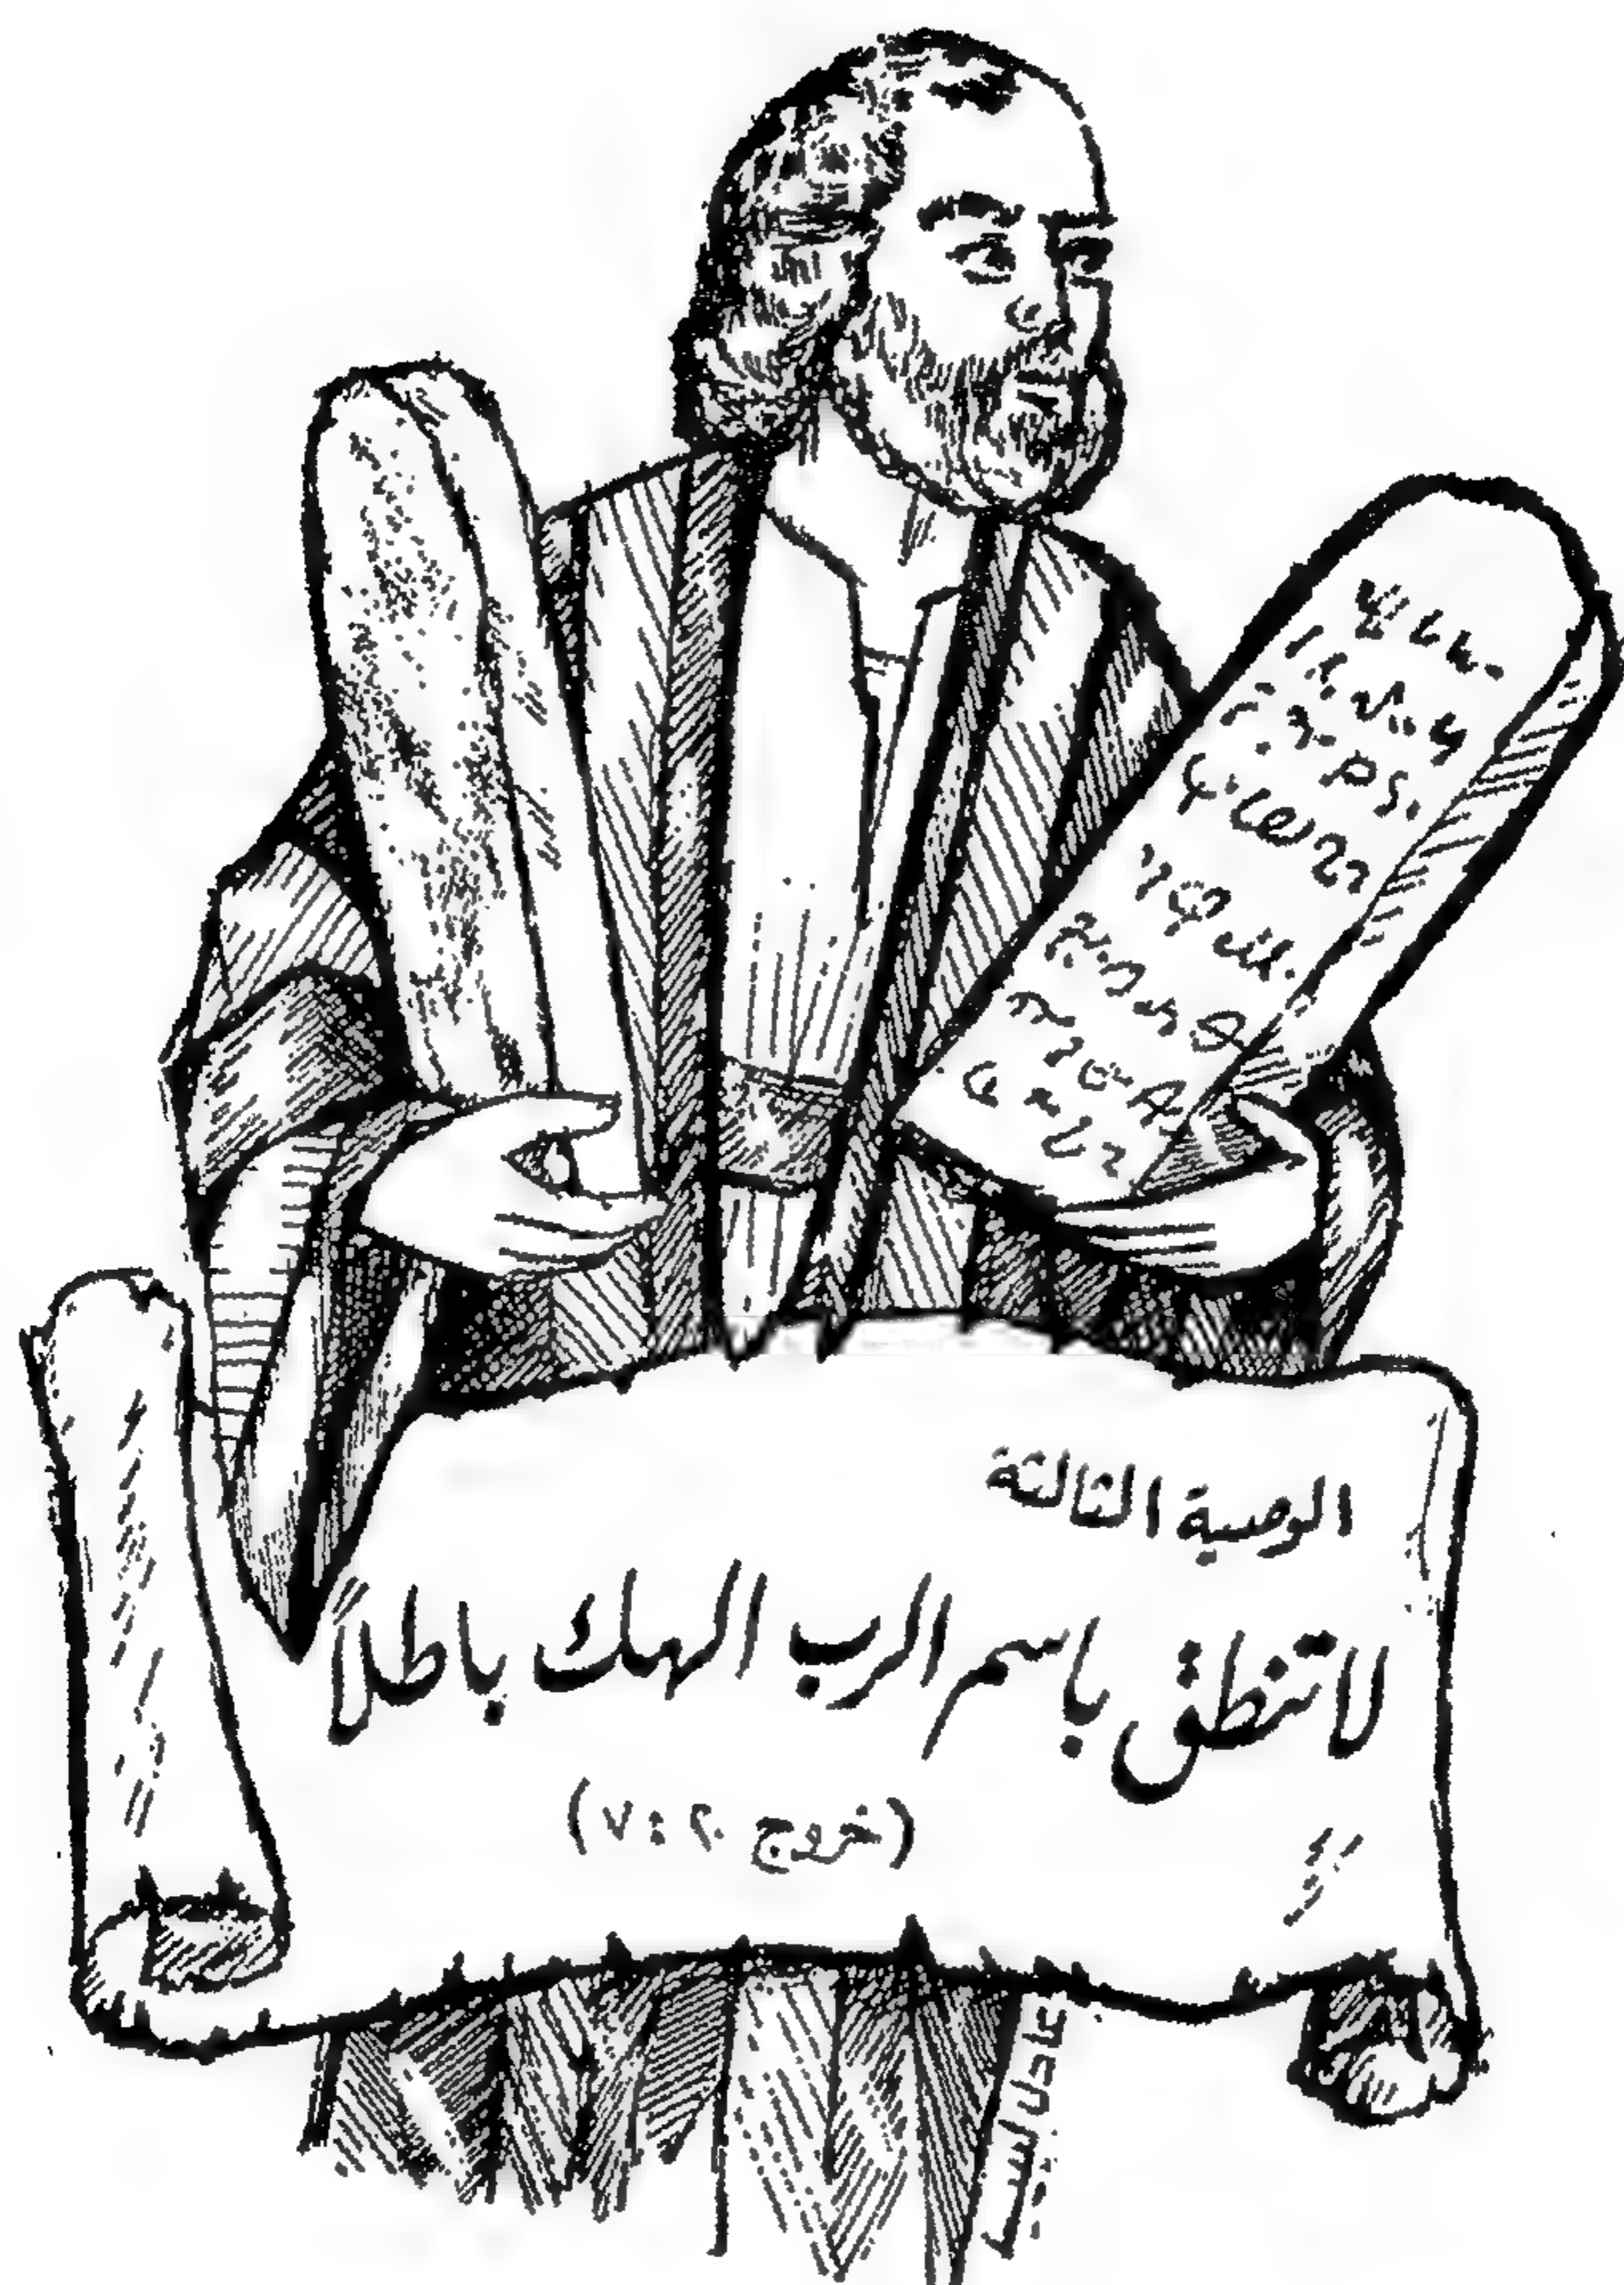 الوصية الثالثة
لا تنطق باسم الرب الهك باطلا
(خروج ٢٠ : ٧)
عادل لبيب